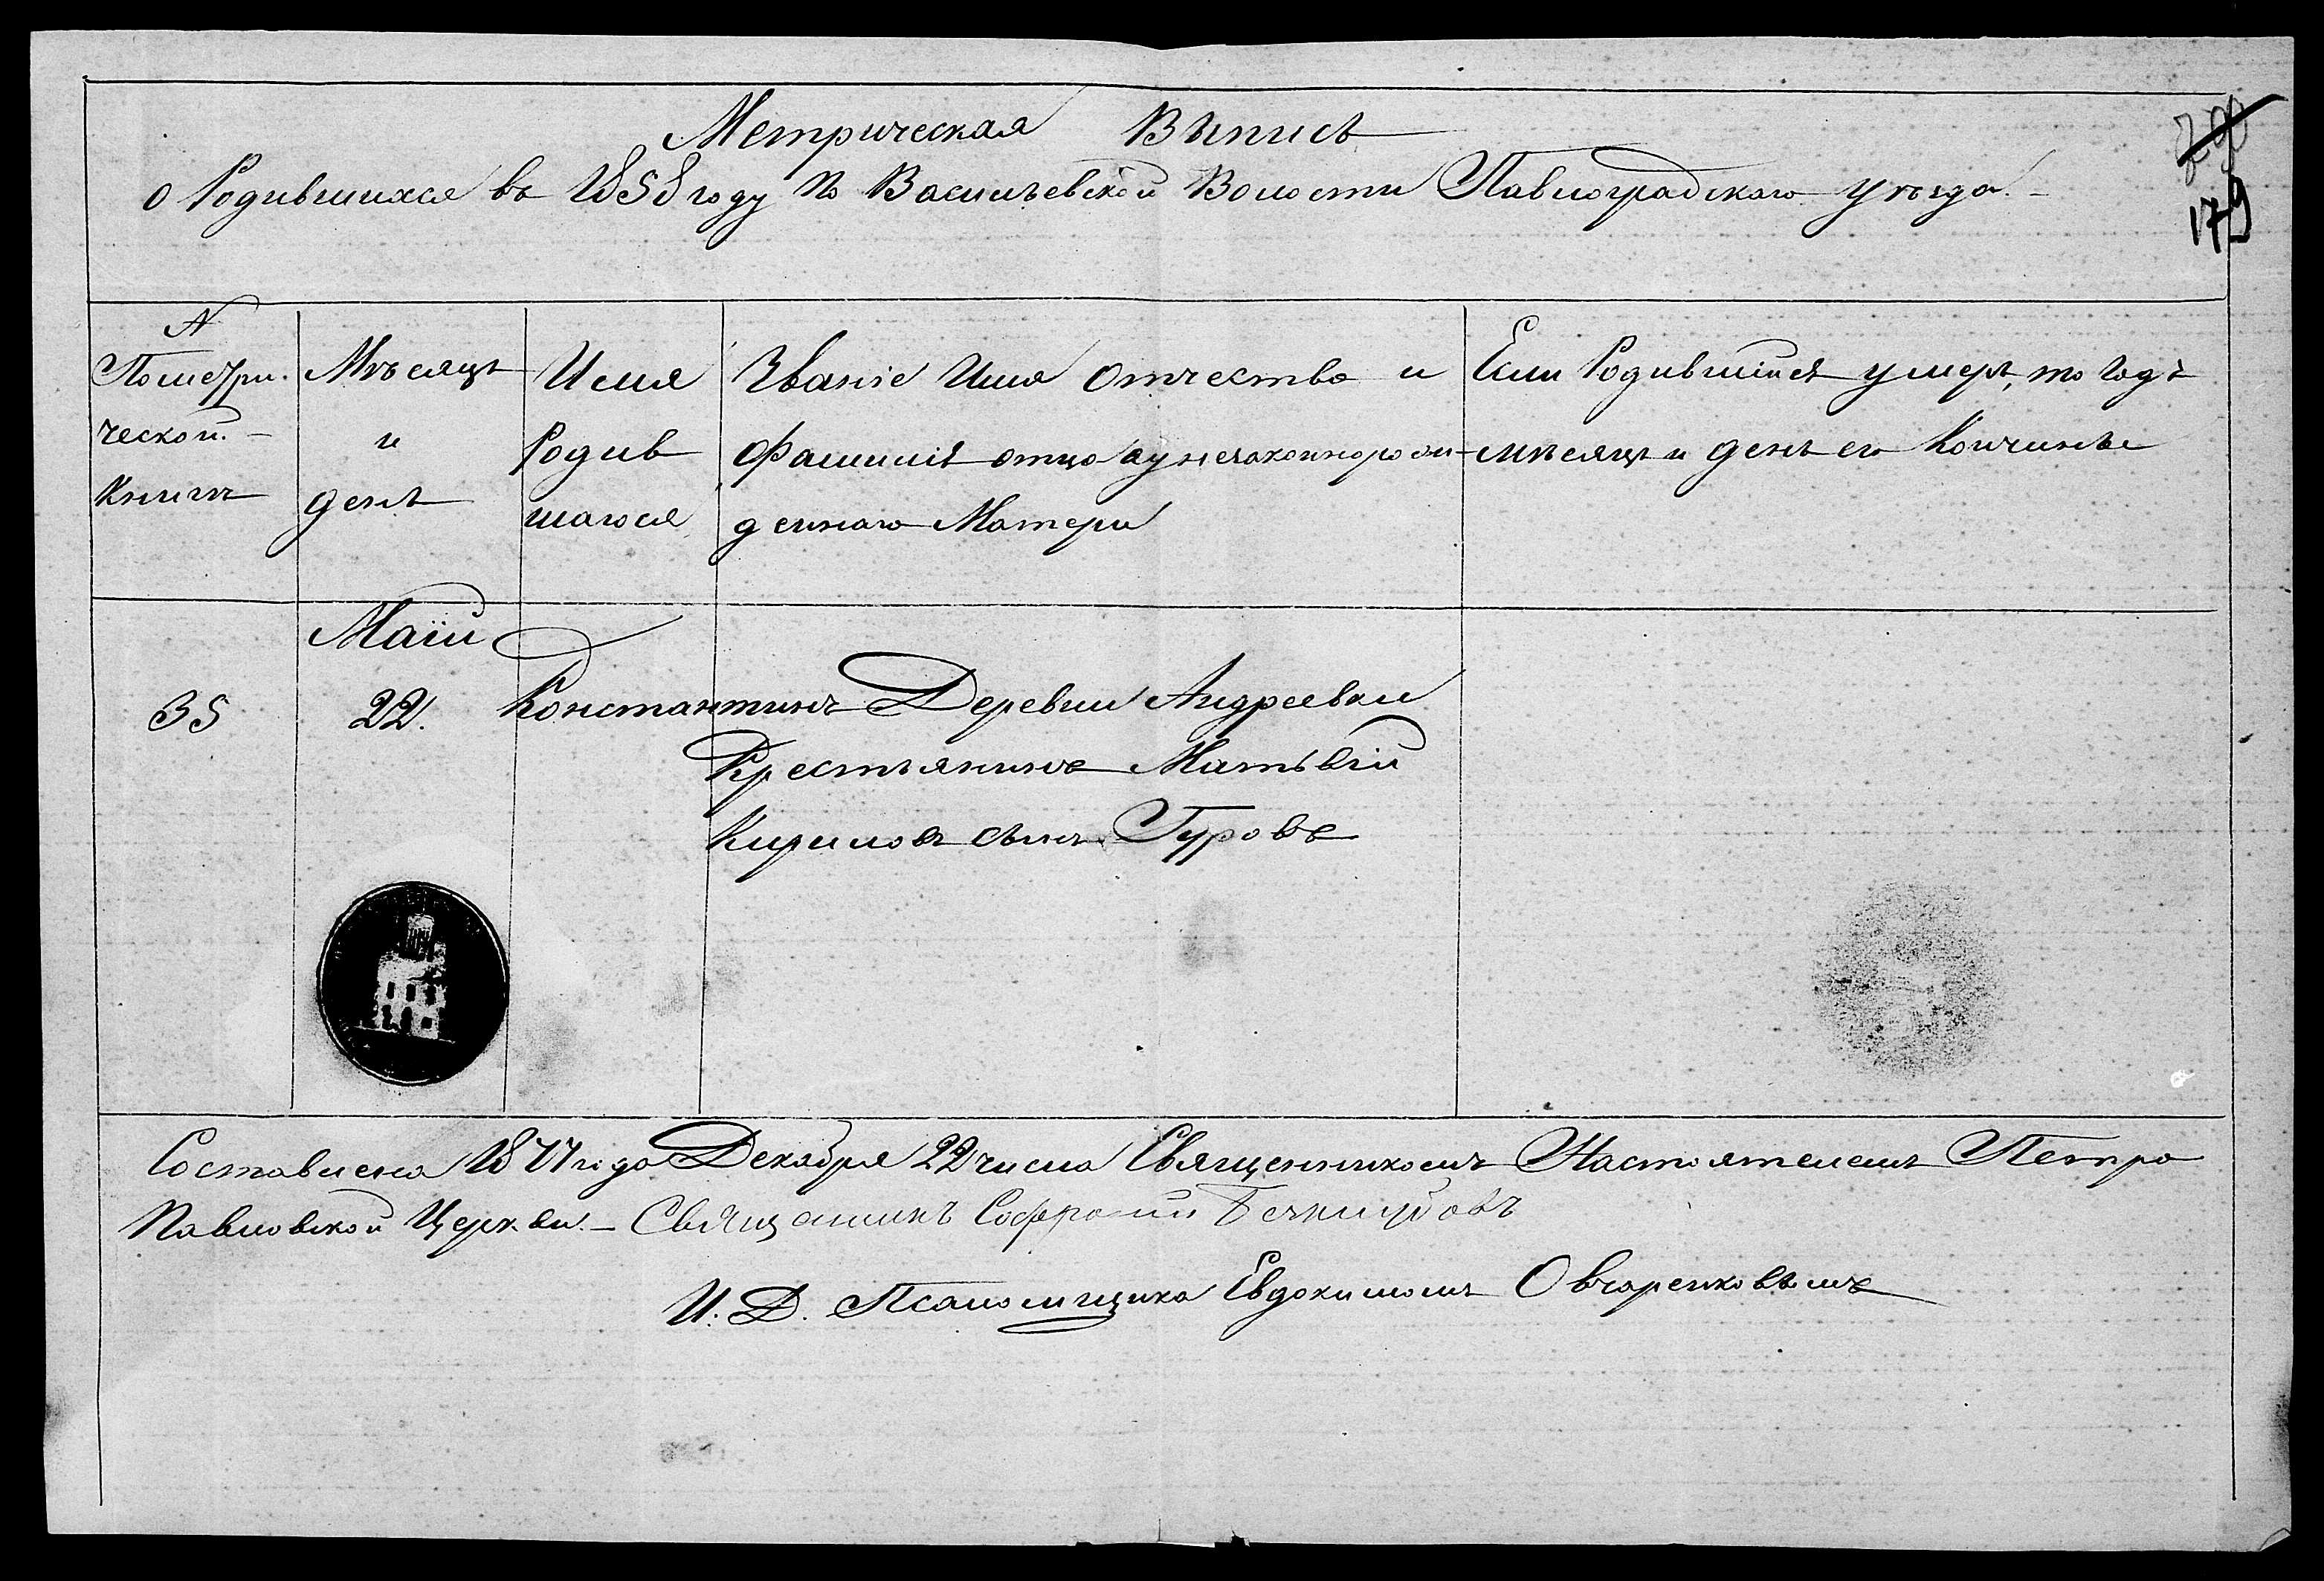 Метрическая Выпись
о Родившихся въ 1858 году по Васильевской Волости Павлоградскаго уѣзда.
179
N
По метри-
ческой
Книгѣ
Мѣсяцъ
и
день
Имя
Родив
шагося
Званіе Имя Отчество и
Фамилія отца а у незаконнорож-
деннаго Матери
Если Родившійся умеръ, то годъ
мѣсяцъ и день его Кончины
Маій
35
22.
Константинъ
Деревни Андреевки
Крестьянинъ Матѣвій
Кириловъ сынъ Гуровъ
Составлена 1877 года Декабря 22 числа Священникомъ Настоятелемъ Петро
Павловской Церкви. – Священникъ Софроній
И. Д. Псаломщика Евдокимомъ Овчаренковымъ